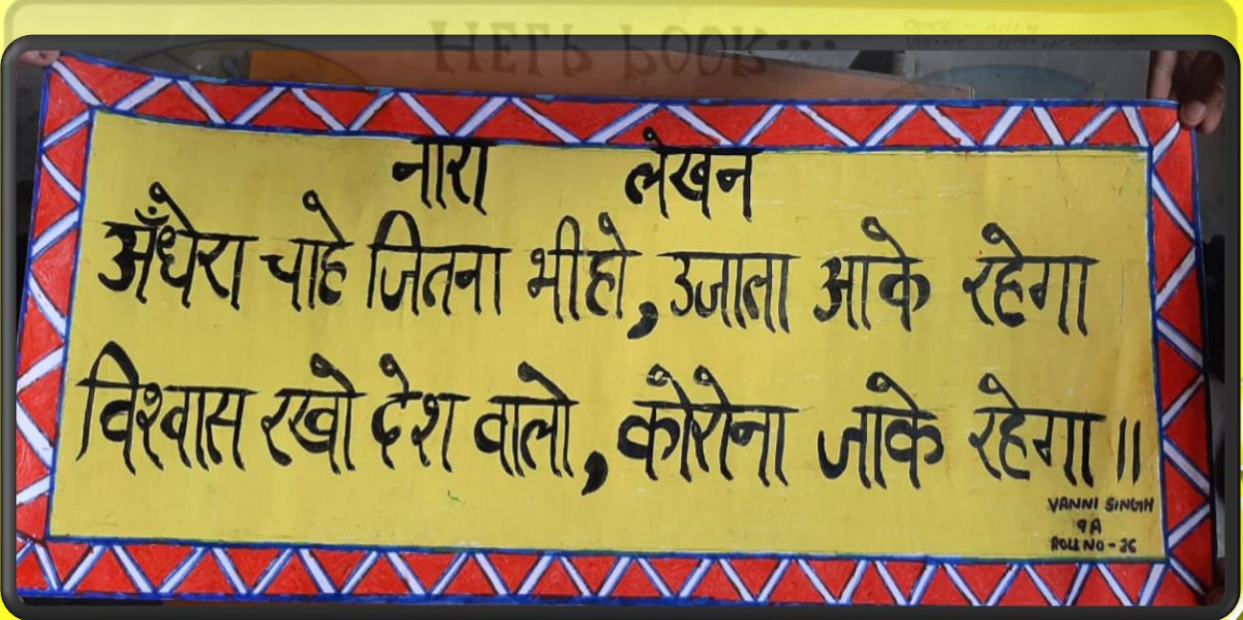 नारा लेखन
अँधेरा चाहे जितना भी हो, उजाला आके रहेगा
विश्वास रखो देश वालो, कोरोना जाके रहेगा ॥
VANNI SINGH
9A
ROLL NO - 26